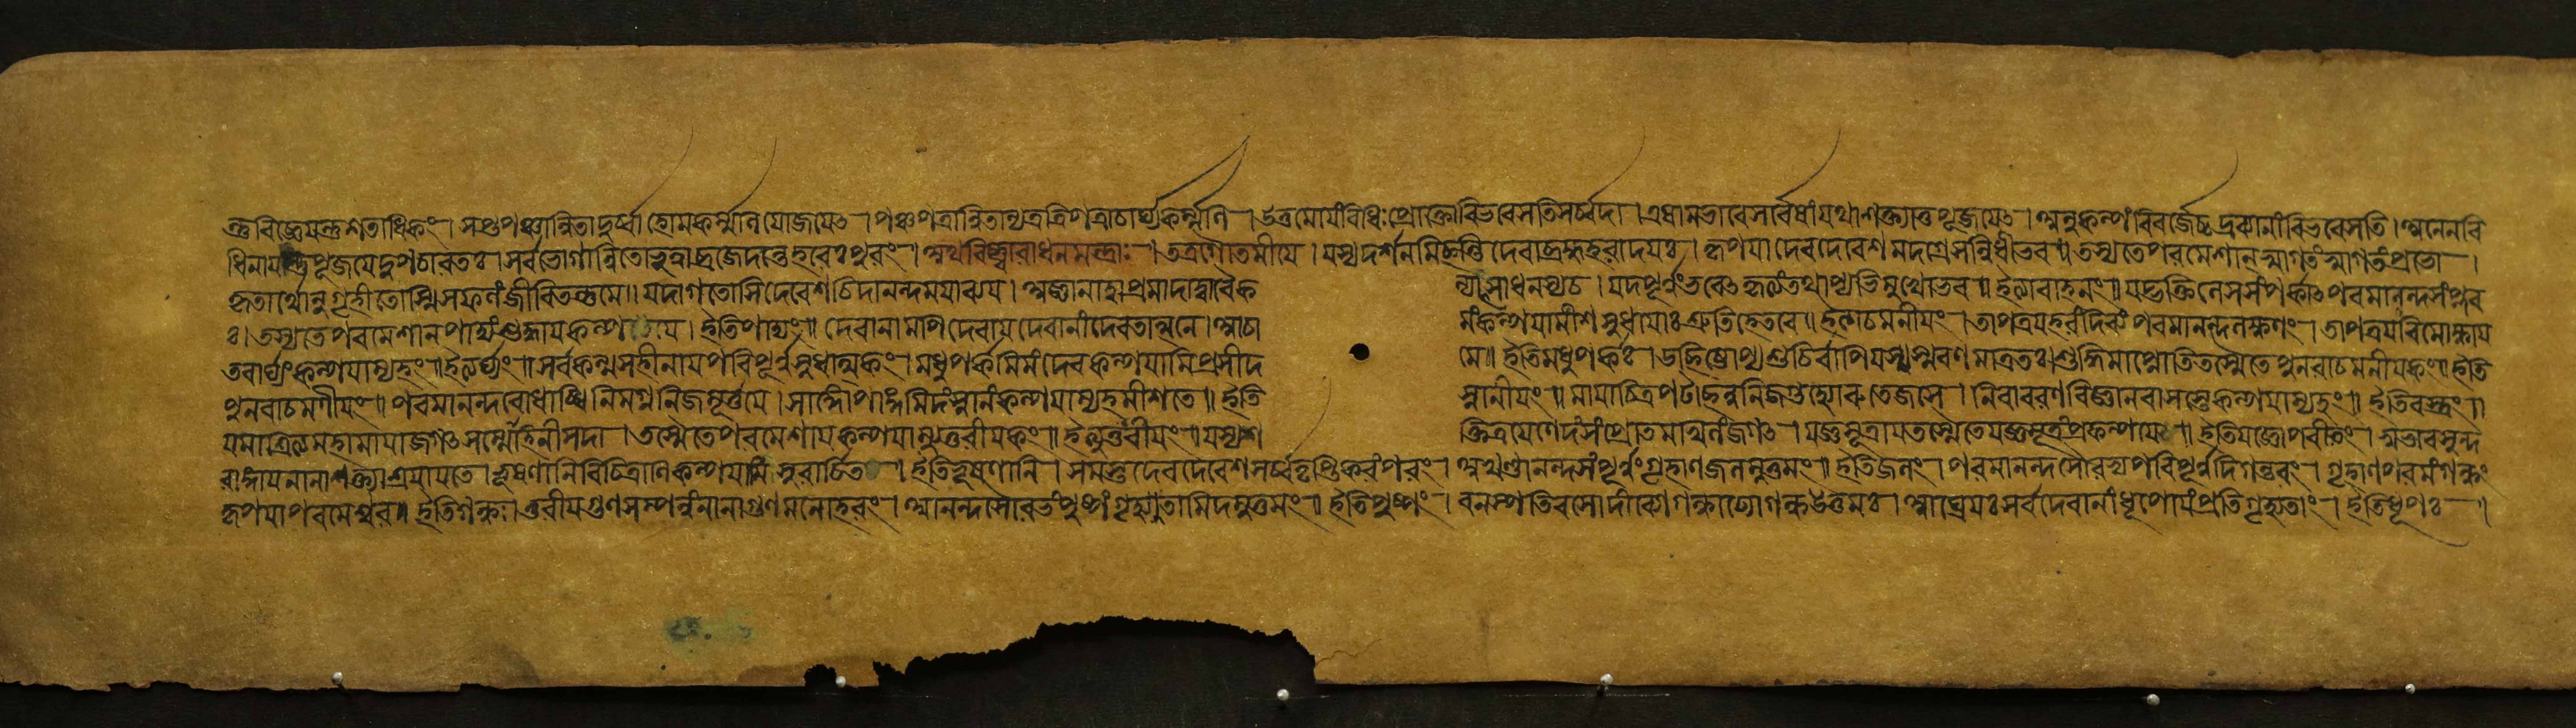 ন্তুবিচ্ছেযন্ত্রশতাধিকং । সপ্তপঞ্চান্বিতা হোমকর্ম্মানি যোজযেৎ । পঞ্চপত্রান্বিতান্যত্র ত্রিপত্রাচার্ঘ্যকর্ম্মনি । বিধিঃ প্রোক্তো বিভবে সতি সর্ব্বদা । সর্বেষাং যথাশক্ত্যাতু পূজযেৎ । অনুকল্পং বিবর্জেচ্চ দ্রব্যানাং বিভবে সতি । অনেন বি
ধিনা যস্তু পূজযে । সর্বভোগান্বিতো ভূত্বা ব্রজেদন্তে হরেঃ পুরং । অথ বিষ্ণ্বারাধনমন্ত্রাঃ । তত্র গৌতমীযে । যস্য দর্শনমিচ্ছন্তি দেবা ব্রহ্মহরাদযঃ । কৃপযা দেবদেবেশ মদগ্রে সন্নিধী ভব ॥ তস্য তে পরমেশান স্বাগতং স্বাগতং প্রভো ।
কৃতার্থোনুগৃহীতোস্মি সফলং জীবিতন্তু মে ॥ যদাগতোসি দেবেশ চিদানন্দমযাব্যয । অজ্ঞানাদ্বা প্রমাদাদ্বা বৈক ল্যাৎ সাধনস্য চ । যদপূর্ণং ভবেৎ কৃত্যং তথাপ্যভিমুখো ভব ॥ ইত্যাবাহনং ॥ যদ্ভক্তিলেশসংপর্কাৎ পরমানন্দসংপ্লব
ঃ । তস্য তে পরমেশান পাদ্যং শুদ্ধায কল্পযে । ইতি পাদ্যং ॥ দেবানামপি দেবায দেবানাং দেবতাত্মনে । আচা মং কল্পযামীশ সুধাযাঃ শ্রুতিহেতবে ॥ ইত্যাচমনীযং । তাপত্রযহরং দিব্যং পরমানন্দলক্ষণং । তাপত্রযবিমোক্ষায
তবার্ঘ্যং কল্পযাম্যহং ॥ ইত্যর্ঘ্যং ॥ সর্বকল্মষহীনায পরিপূর্ণসুধাত্মকং । মধুপর্কমিমং দেব কল্পযামি প্রসীদ মে ॥ ইতি মধুপর্কঃ । উচ্ছিষ্টোপ্যশুচির্বাপি যস্য স্মরণমাত্রতঃ । শুদ্ধিমাপ্নোতি তস্মৈ তে পুনরাচমনীযকং ॥ ইতি
পুনরাচমনীযং ॥ পরমানন্দবোধাব্ধিনিমগ্ননিজমূর্ত্তযে । সাঙ্গোপাঙ্গমিদং স্নানং কল্পযাম্যহমীশ তে ॥ ইতি স্নানীযং ॥ মাযাচিত্রপটাচ্ছন্ননিজগুহ্যোরুতেজসে । নিরাবরণবিজ্ঞান বাসস্তে কল্পযাম্যহং ॥ ইতি বস্ত্রং ॥
যমাশ্রিত্য মহামাযা জগৎসম্মোহিনী সদা । তস্মৈ তে পরমেশায কল্পযাম্যুত্তরীযকং ॥ ইত্যুত্তরীযং ॥ যস্য শ ক্তিত্রযেণেদং সংপ্রোতমখিলং জগৎ । যজ্ঞসূত্রায তস্মৈ তে যজ্ঞসূত্রং প্রকল্পযে ॥ ইতি যজ্ঞোপবীতং । স্বভাবসুন্দ
রাঙ্গায নানাশক্ত্যাশ্রযায তে । ভূষণানি বিচিত্রাণি কল্পযামি সুরার্চিত । ইতি ভূষণানি । সমস্তদেবদেবেশ সর্ব্বতৃপ্তিকরং পরং । অখণ্ডানন্দসংপূর্ণং গৃহাণ জলমুত্তমং ॥ ইতি জলং । পরমানন্দসৌরভ্যপরিপূর্ণদিগন্তরং । গৃহাণ পরমং গন্ধং
কৃপযা পরমেশ্বর ॥ ইতি গন্ধঃ । তুরীযগুণসম্পন্নং নানাগুণমনোহরং । আনন্দসৌরভং পুষ্পং গৃহ্যতামিদমুত্তমং ॥ ইতি পুষ্পং । বনস্পতিরসো দিব্যো গন্ধাঢ্যো গন্ধ উত্তমঃ । আঘ্রেযঃ সর্বদেবানাং ধূপোযং প্রতিগৃহ্যতাং । ইতি ধূপঃ ॥